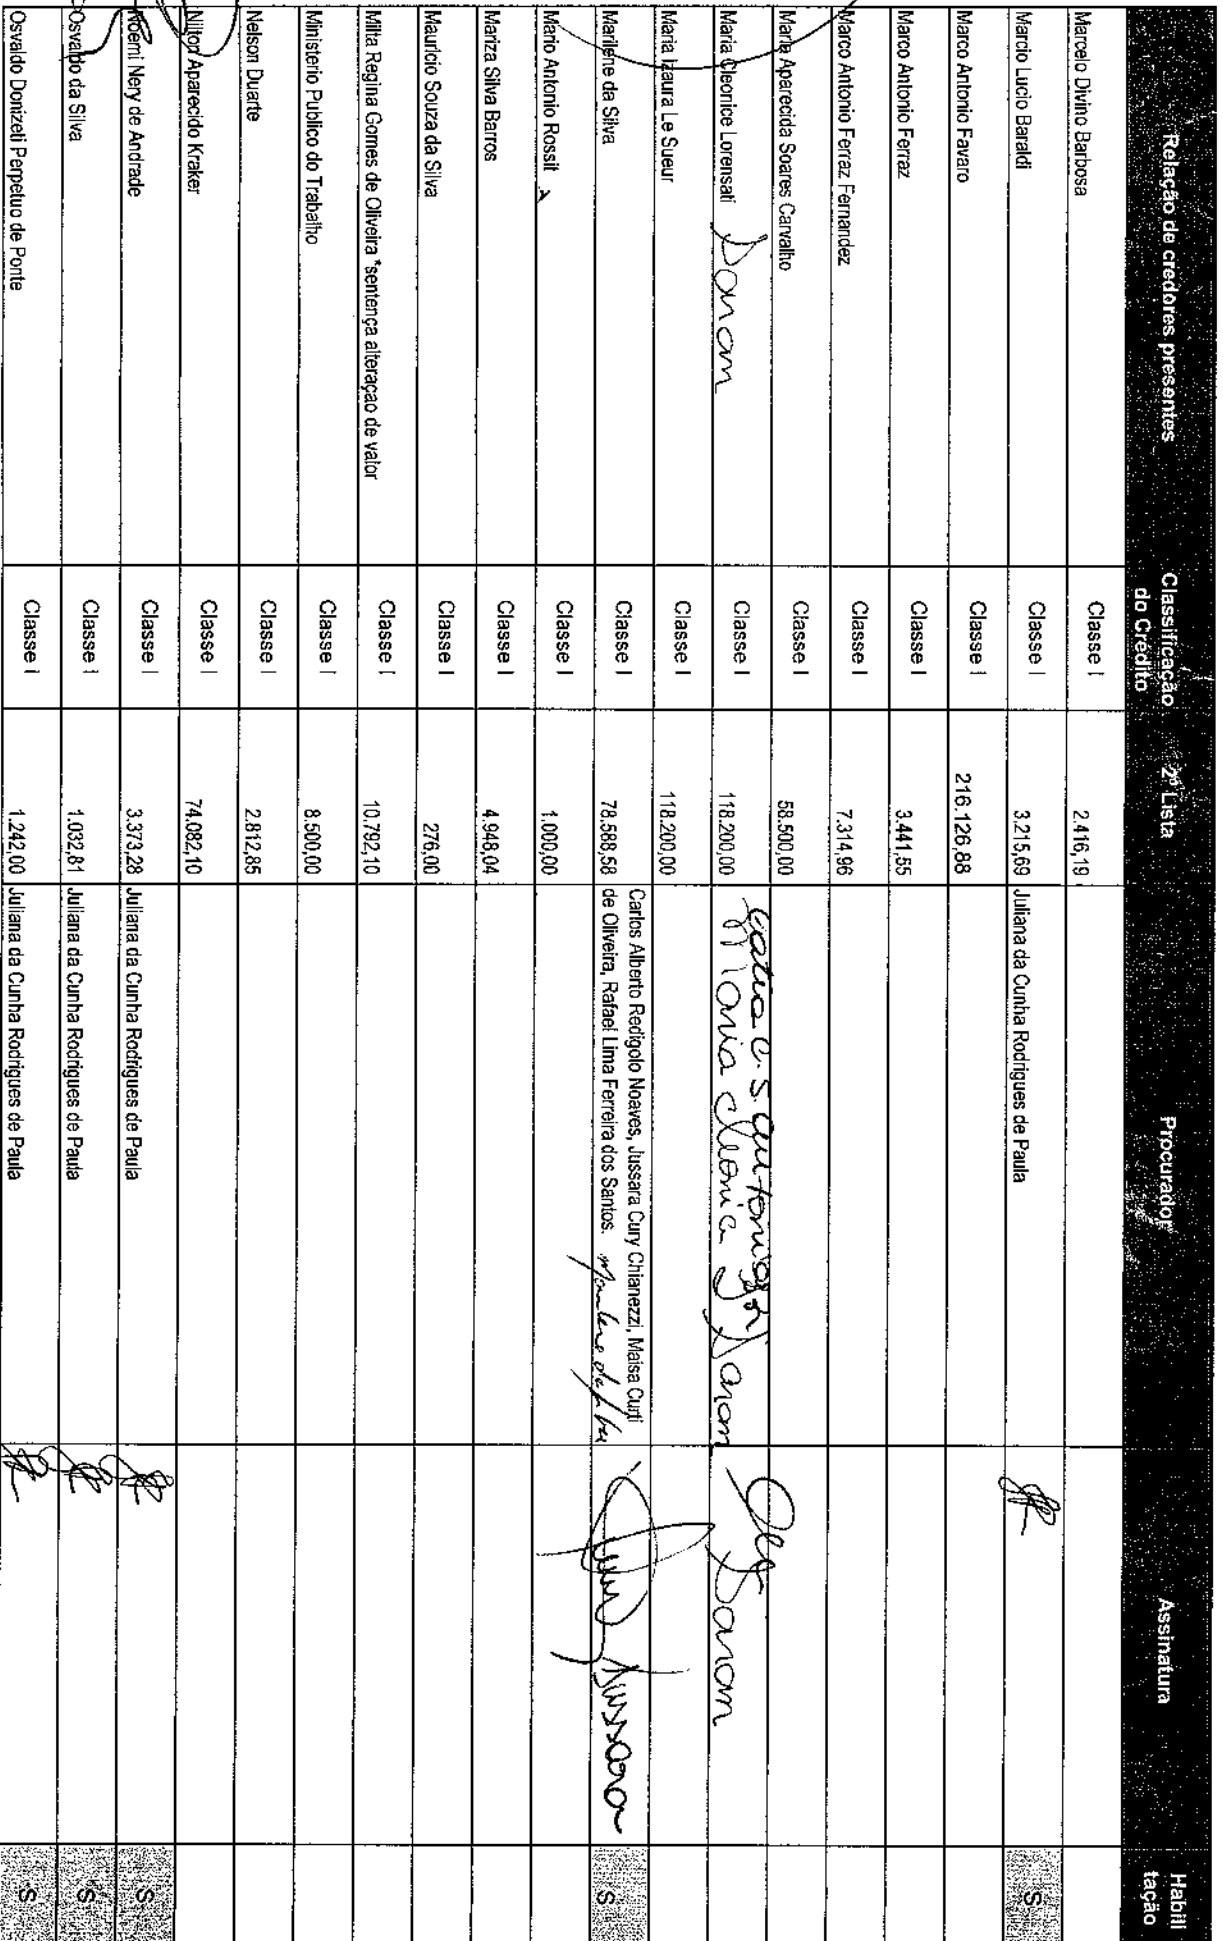 Relação de credores presentes Classificação do Crédito 2ª Lista Procurador Assinatura Habili tação
Marcelo Divino Barbosa Classe I 2.416,19
Marcio Lucio Baraldi Classe I 3.215,69 Juliana da Cunha Rodrigues de Paula S
Marco Antonio Favaro Classe I 216.126,88
Marco Antonio Ferraz Classe I 3.441,55
Marco Antonio Ferraz Fernandez Classe I 7.314,96
Maria Aparecida Soares Carvalho Classe I 58.500,00
Maria Cleonice Lorensati Donom Classe I 118.200,00 Maria Cleonice Donom Donom
Maria Izaura Le Sueur Classe I 118.200,00
Marilene da Silva Classe I 78.588,58 Carlos Alberto Redigolo Noaves, Jussara Cury Chianezzi, Maisa Curti
de Oliveira, Rafael Lima Ferreira dos Santos. Jussara S
Mario Antonio Rossit x Classe I 1.000,00
Mariza Silva Barros Classe I 4.948,04
Mauricio Souza da Silva Classe I 276,00
Milta Regina Gomes de Oliveira *sentença alteraçao de valor Classe I 10.792,10
Ministerio Publico do Trabalho Classe I 8.500,00
Nelson Duarte Classe I 2.812,85
Nilton Aparecido Kraker Classe I 74.082,10
Noemi Nery de Andrade Classe I 3.373,28 Juliana da Cunha Rodrigues de Paula S
Osvaldo da Silva Classe I 1.032,81 Juliana da Cunha Rodrigues de Paula S
Osvaldo Donizeti Perpetuo de Ponte Classe I 1.242,00 Juliana da Cunha Rodrigues de Paula S